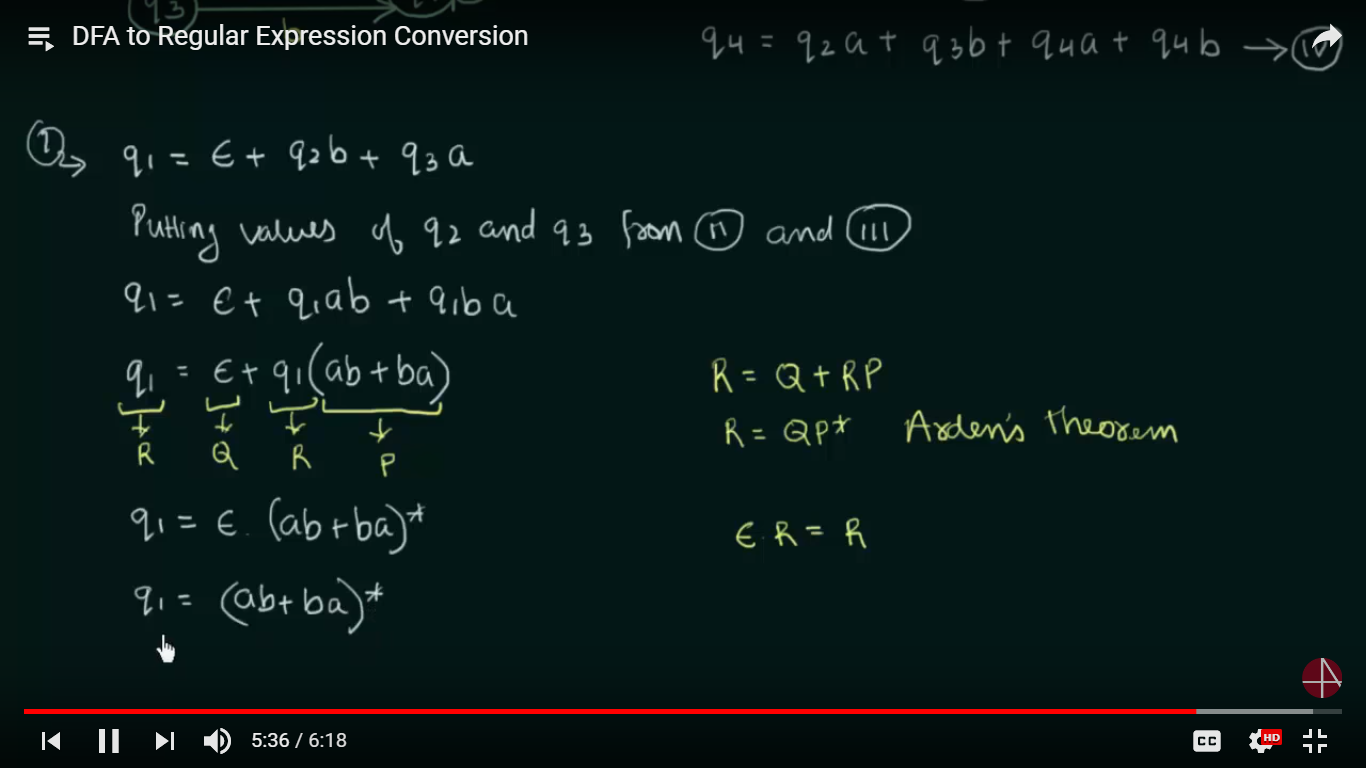 q3
b
DFA to Regular Expression Conversion
q4 = q2a + q3b + q4a + q4b → (iv)
(I)→ q1 = ε + q2b + q3a
Putting values of q2 and q3 from (II) and (III)
q1 = ε + q1ab + q1ba
q1 = ε + q1(ab + ba)
R Q R P
R = Q + RP
R = QP* Arden's theorem
q1 = ε. (ab + ba)*
ε.R = R
q1 = (ab + ba)*
5:36 / 6:18
CC
HD